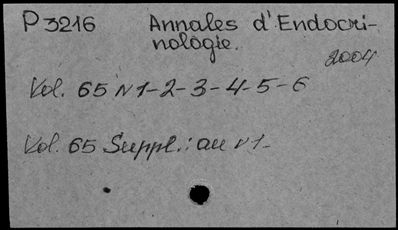 P3216 Annales d'Endocri-
nologie.
2004
Vol. 65 N 1-2-3-4-5-6
Vol. 65 Suppl.: au N 1-